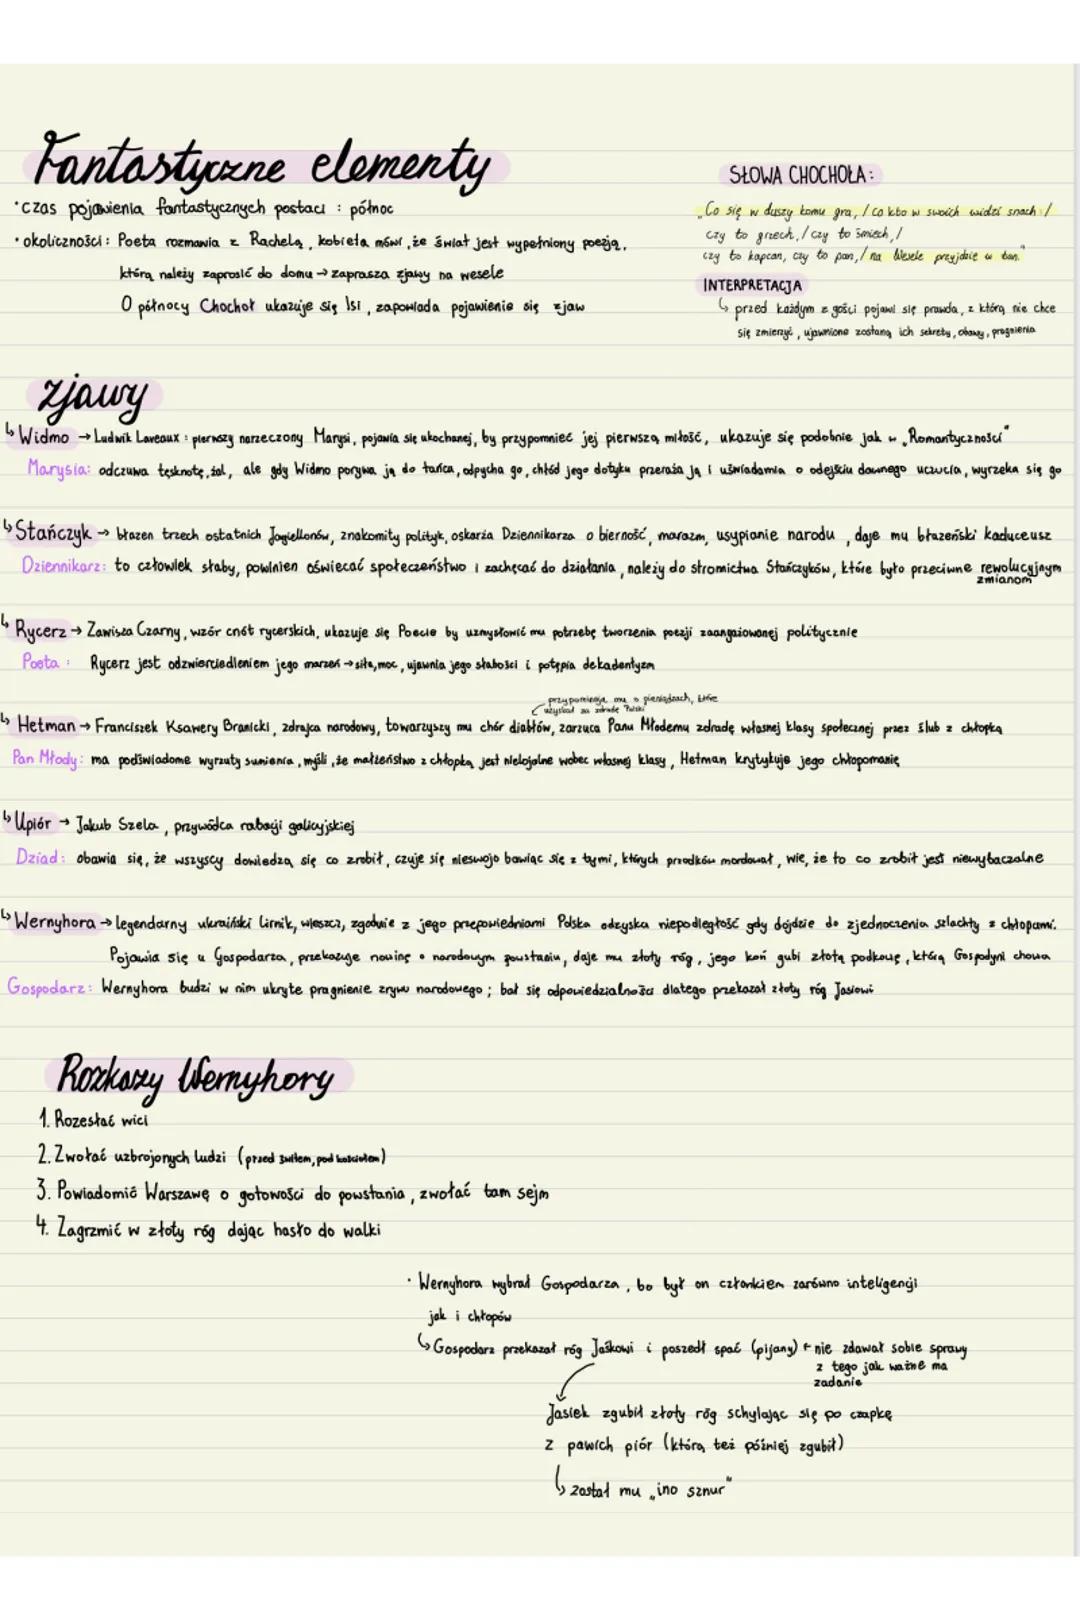 Fantastyczne elementy
• czas pojawienia fantastycznych postaci : północ
• okoliczności: Poeta rozmawia z Rachelą, kobieta mówi, że świat jest wypełniony poezją,
którą należy zaprosić do domu → zaprasza zjawy na wesele
O północy Chochoł ukazuje się Isi, zapowiada pojawienie się zjaw
SŁOWA CHOCHOŁA:
„Co się w duszy komu gra, / co kto w swoich widzi snach: /
czy to grzech, / czy to śmiech, /
czy to kapcan, czy to pan, / na Wesele przyjdzie w tan."
INTERPRETACJA
↳ przed każdym z gości pojawi się prawda, z którą nie chce
się zmierzyć, ujawnione zostaną ich sekrety, obawy, pragnienia
zjawy
↳ Widmo → Ludwik Laveaux : pierwszy narzeczony Marysi, pojawia się ukochanej, by przypomnieć jej pierwszą miłość, ukazuje się podobnie jak w „Romantyczności"
Marysia: odczuwa tęsknotę, żal, ale gdy Widmo porywa ją do tańca, odpycha go, chłód jego dotyku przeraża ją i uświadamia o odejściu dawnego uczucia, wyrzeka się go
↳ Stańczyk → błazen trzech ostatnich Jagiellonów, znakomity polityk, oskarża Dziennikarza o bierność, marazm, usypianie narodu, daje mu błazeński kaduceusz
Dziennikarz: to człowiek słaby, powinien oświecać społeczeństwo i zachęcać do działania, należy do stronnictwa Stańczyków, które było przeciwne rewolucyjnym
zmianom
↳ Rycerz → Zawisza Czarny, wzór cnót rycerskich, ukazuje się Poecie by uzmysłowić mu potrzebę tworzenia poezji zaangażowanej politycznie
Poeta : Rycerz jest odzwierciedleniem jego marzeń → siła, moc, ujawnia jego słabości i potępia dekadentyzm
przypominają mu o pieniądzach, które
uzyskał za zdradę Polski
↳ Hetman → Franciszek Ksawery Branicki, zdrajca narodowy, towarzyszy mu chór diabłów, zarzuca Panu Młodemu zdradę własnej klasy społecznej przez ślub z chłopką
Pan Młody: ma podświadome wyrzuty sumienia, myśli, że małżeństwo z chłopką jest nielojalne wobec własnej klasy, Hetman krytykuje jego chłopomanię
↳ Upiór → Jakub Szela, przywódca rabacji galicyjskiej
Dziad: obawia się, że wszyscy dowiedzą się co zrobił, czuje się nieswojo bawiąc się z tymi, których przodków mordował, wie, że to co zrobił jest niewybaczalne
↳ Wernyhora → legendarny ukraiński lirnik, wieszcz, zgodnie z jego przepowiedniami Polska odzyska niepodległość gdy dojdzie do zjednoczenia szlachty z chłopami.
Pojawia się u Gospodarza, przekazuje nowinę o narodowym powstaniu, daje mu złoty róg, jego koń gubi złotą podkowę, którą Gospodyni chowa
Gospodarz: Wernyhora budzi w nim ukryte pragnienie zrywu narodowego ; bał się odpowiedzialności dlatego przekazał złoty róg Jasiowi
Rozkazy Wernyhory
1. Rozesłać wici
2. Zwołać uzbrojonych ludzi (przed świtem, pod kościołem)
3. Powiadomić Warszawę o gotowości do powstania, zwołać tam sejm
4. Zagrzmić w złoty róg dając hasło do walki
• Wernyhora wybrał Gospodarza, bo był on członkiem zarówno inteligencji
jak i chłopów
↳ Gospodarz przekazał róg Jaśkowi i poszedł spać (pijany) ← nie zdawał sobie sprawy
z tego jak ważne ma
zadanie
Jasiek zgubił złoty róg schylając się po czapkę
z pawich piór (którą też później zgubił)
↳ został mu „ino sznur"